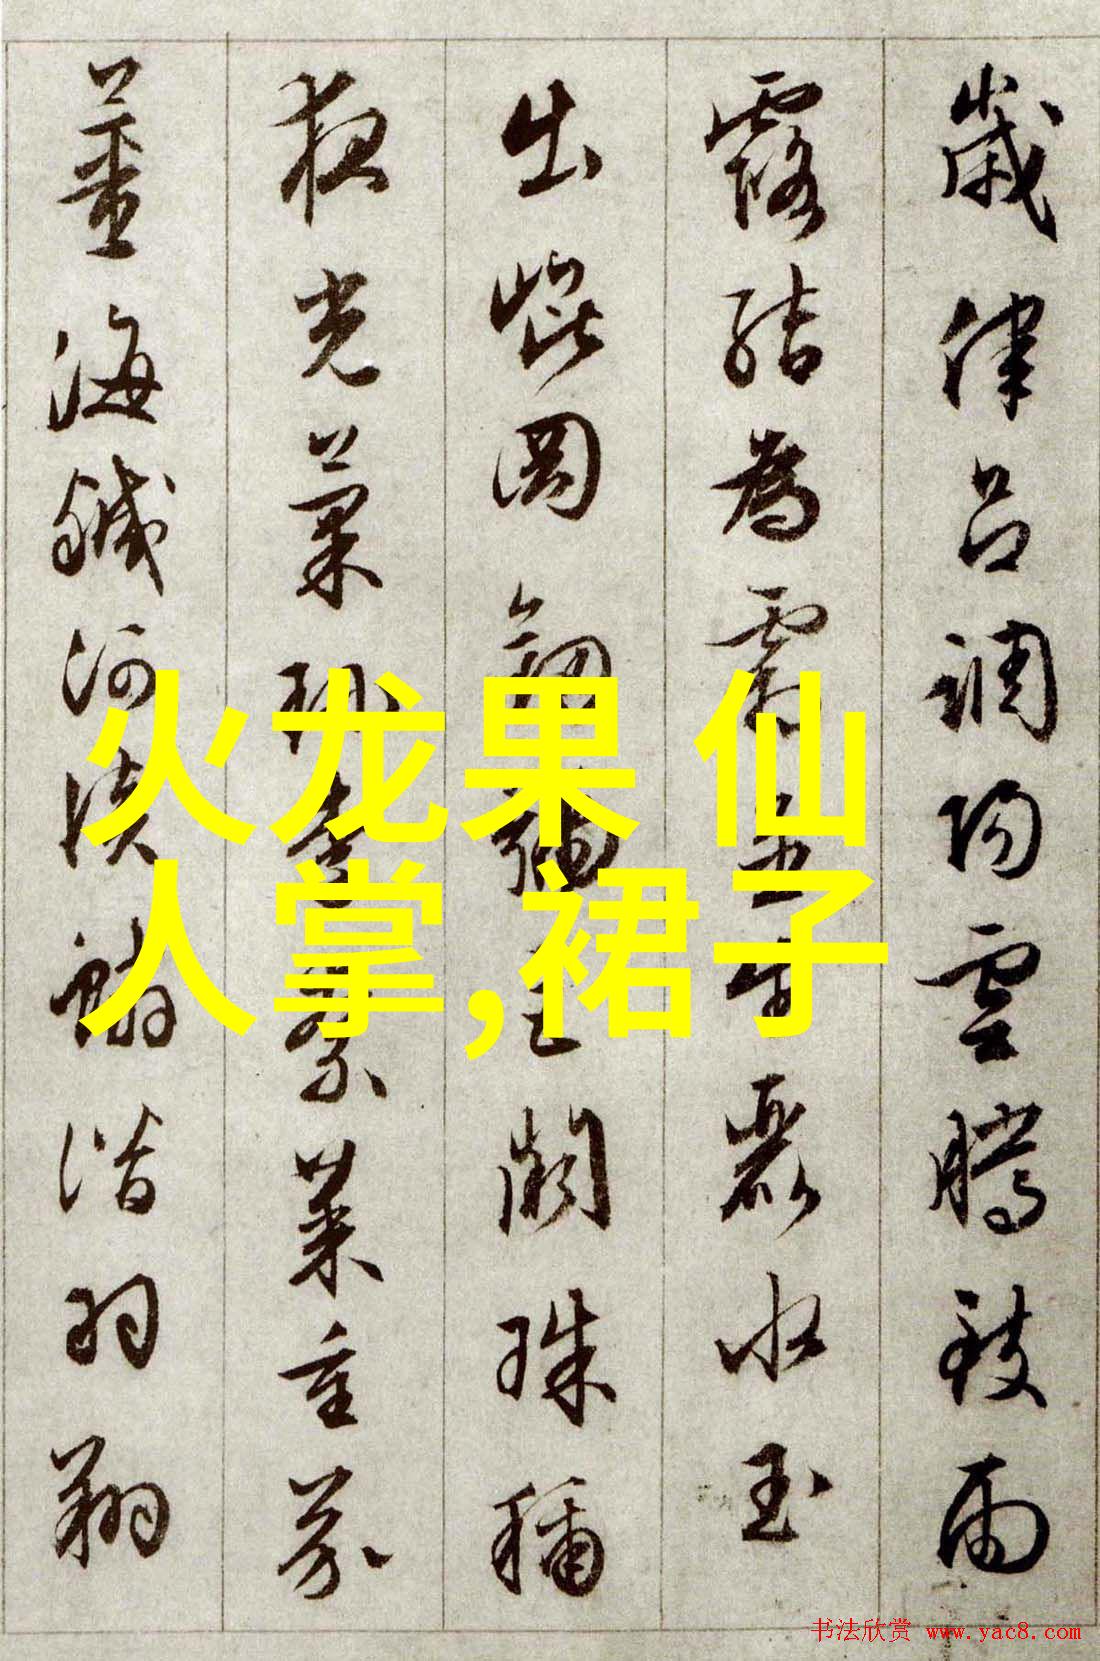 歲律呂調陽雲騰致雨
露結為霜金生麗水玉
出崐岡劍號巨闕珠稱
夜光菓珍李柰菜重芥
薑海鹹河淡鱗潛羽翔
火龙果 仙
人掌,裙子
书法欣赏 www.yac8.com